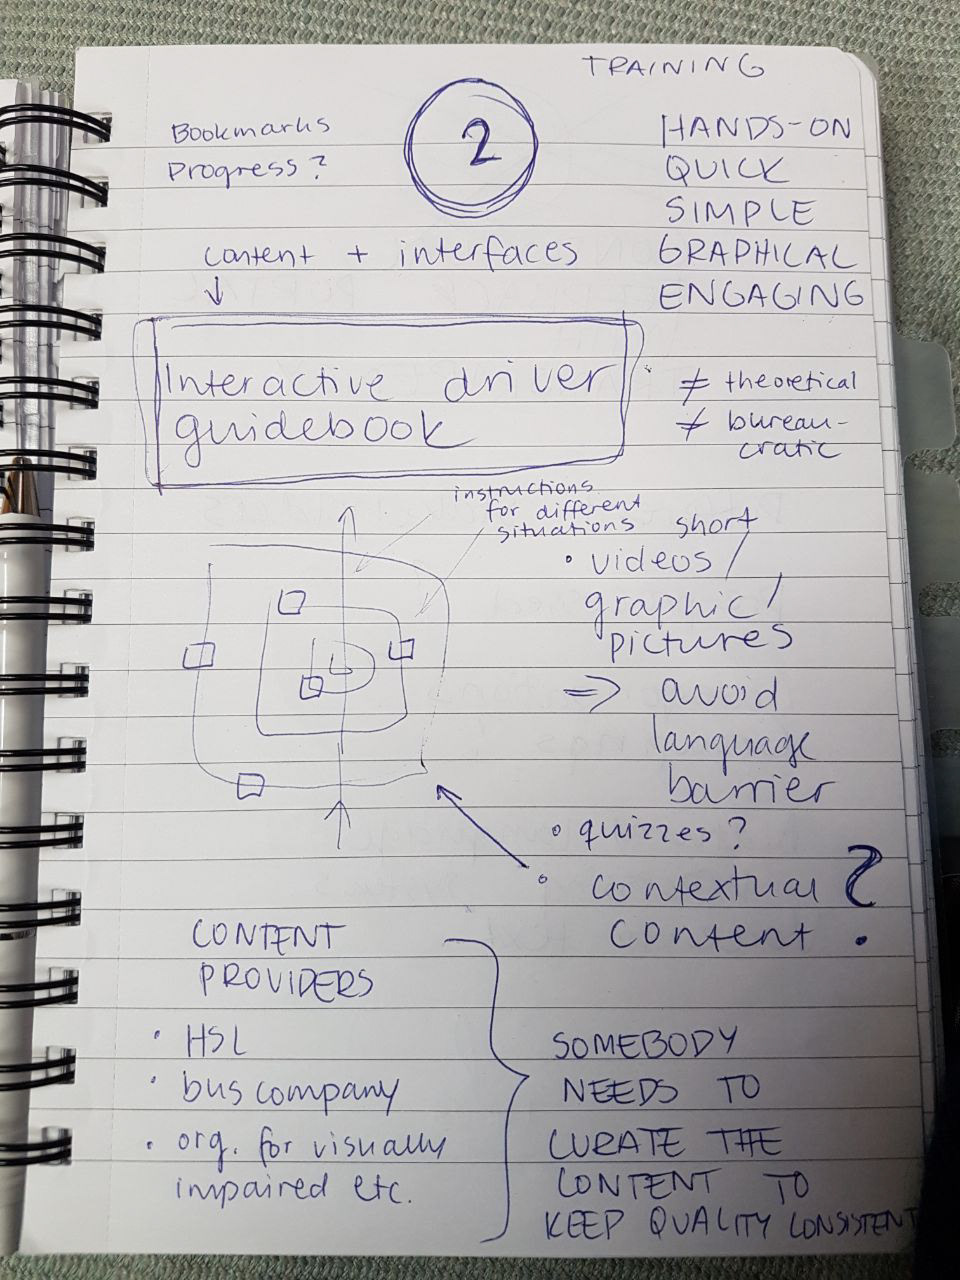 TRAINING
Bookmarks
Progress?
2
HANDS-ON
QUICK
SIMPLE
GRAPHICAL
ENGAGING
content + interfaces
↓
Interactive driver
guidebook
≠ theoretical
≠ bureau-
cratic
instructions
for different
situations
short
• videos /
graphic /
pictures
=> avoid
language
barrier
• quizzes?
• contextual ?
content
CONTENT
PROVIDERS
• HSL
• bus company
• org. for visually
impaired etc.
SOMEBODY
NEEDS TO
CURATE THE
CONTENT TO
KEEP QUALITY CONSISTENT